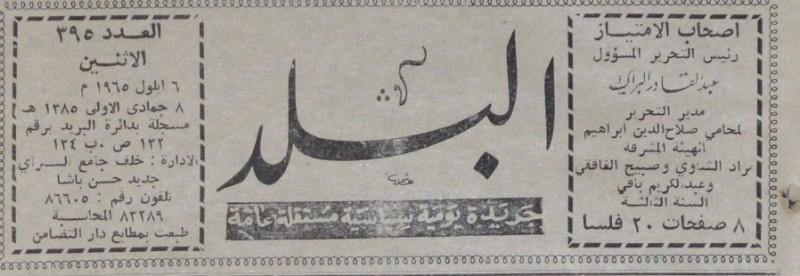 اصحاب الامتياز
رئيس التحرير المسؤول
عبدالقادر البراك
مدير التحرير
لمحامي صلاح الدين ابراهيم
الهيئة المشرفة
براد الشاوي وصبيح الغافقي
وعبدالكريم باقي
السنة الثالثة
٨ صفحات ٢٠ فلسا
البلد
جريدة يومية سياسية مستقلة عامة
العدد ٣٩٥
الاثنين
٦ ايلول ١٩٦٥ م
٨ جمادى الاولى ١٣٨٥ هـ
مسجلة بدائرة البريد برقم
١٣٢ ص ٠ب ١٣٤
الادارة : خلف جامع السراي
جديد حسن باشا
تلفون رقم : ٨٦٦٠٥
٨٢٢٨٩ المحاسبة
طبعت بمطابع دار التضامن